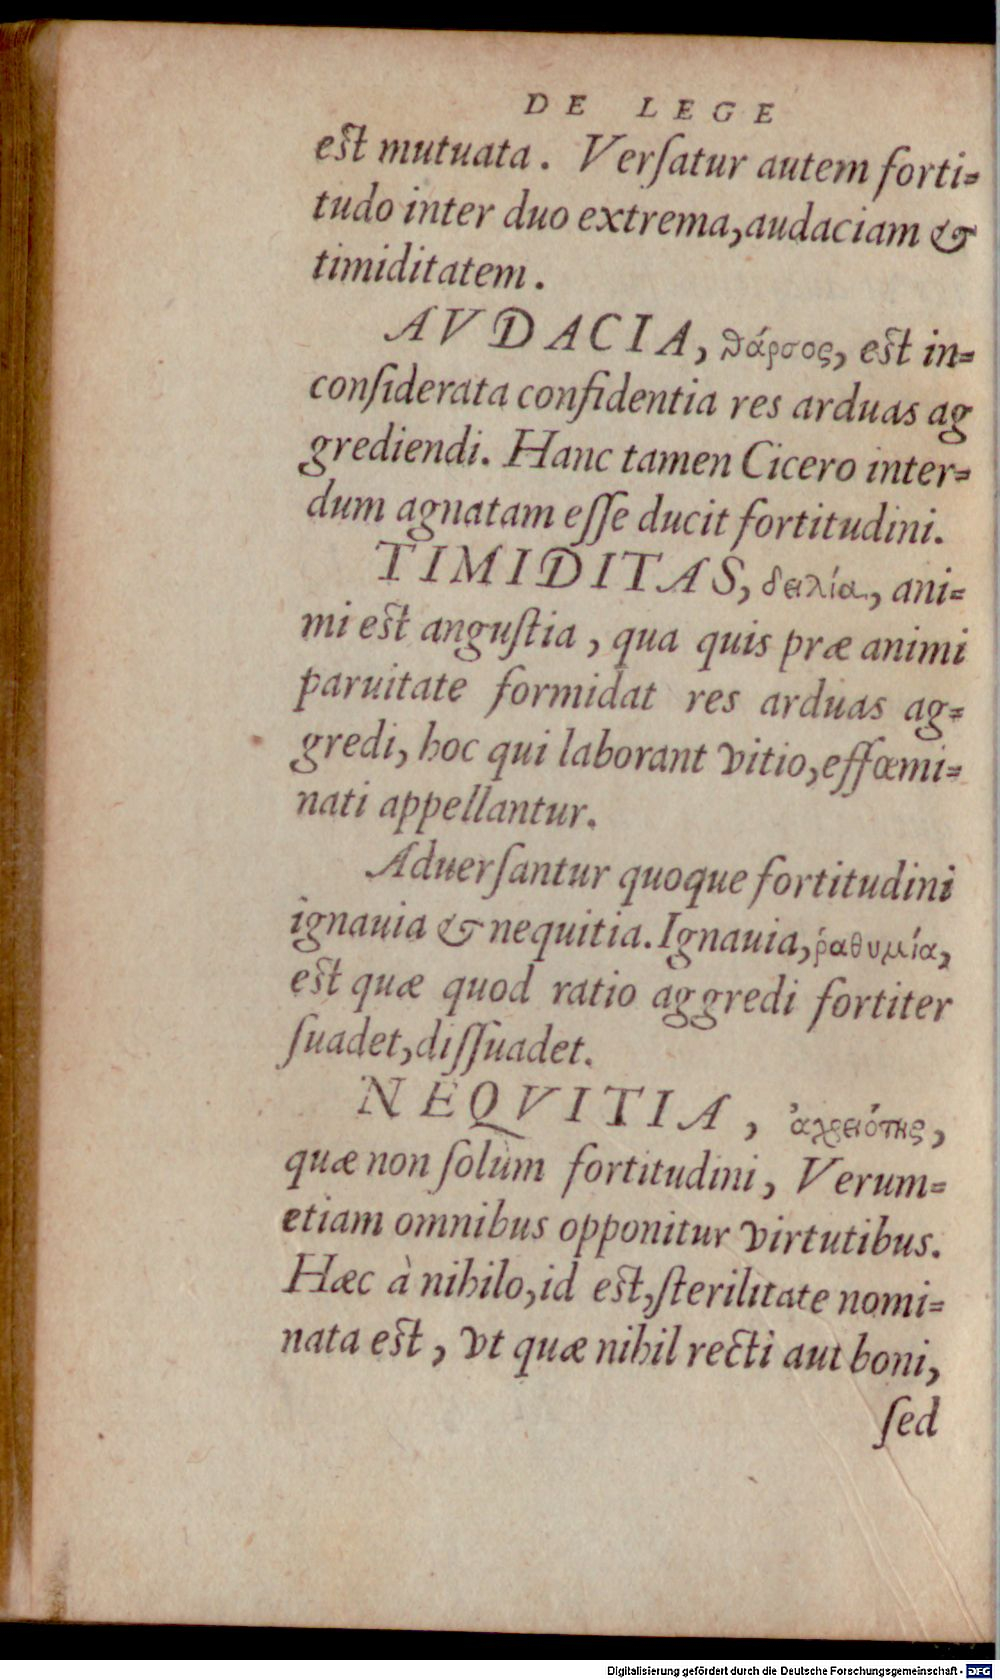 DE LEGE
est mutuata. Verſatur autem forti-
tudo inter duo extrema, audaciam &
timiditatem.
AVDACIA, θάρσος, est in-
conſiderata confidentia res arduas ag
grediendi. Hanc tamen Cicero inter-
dum agnatam eſſe ducit fortitudini.
TIMIDITAS, δειλία, ani-
mi est anguſtia, qua quis præ animi
paruitate formidat res arduas ag-
gredi, hoc qui laborant vitio, effœmi-
nati appellantur.
Aduerſantur quoque fortitudini
ignauia & nequitia. Ignauia, ῥαθυμία,
est quæ quod ratio aggredi fortiter
ſuadet, diſſuadet.
NEQVITIA, ἀχρειότης,
quæ non ſolùm fortitudini, Verum-
etiam omnibus opponitur virtutibus.
Hæc à nihilo, id est, ſterilitate nomi-
nata est, vt quæ nihil recti aut boni,
ſed
Digitalisierung gefördert durch die Deutsche Forschungsgemeinschaft - DFG